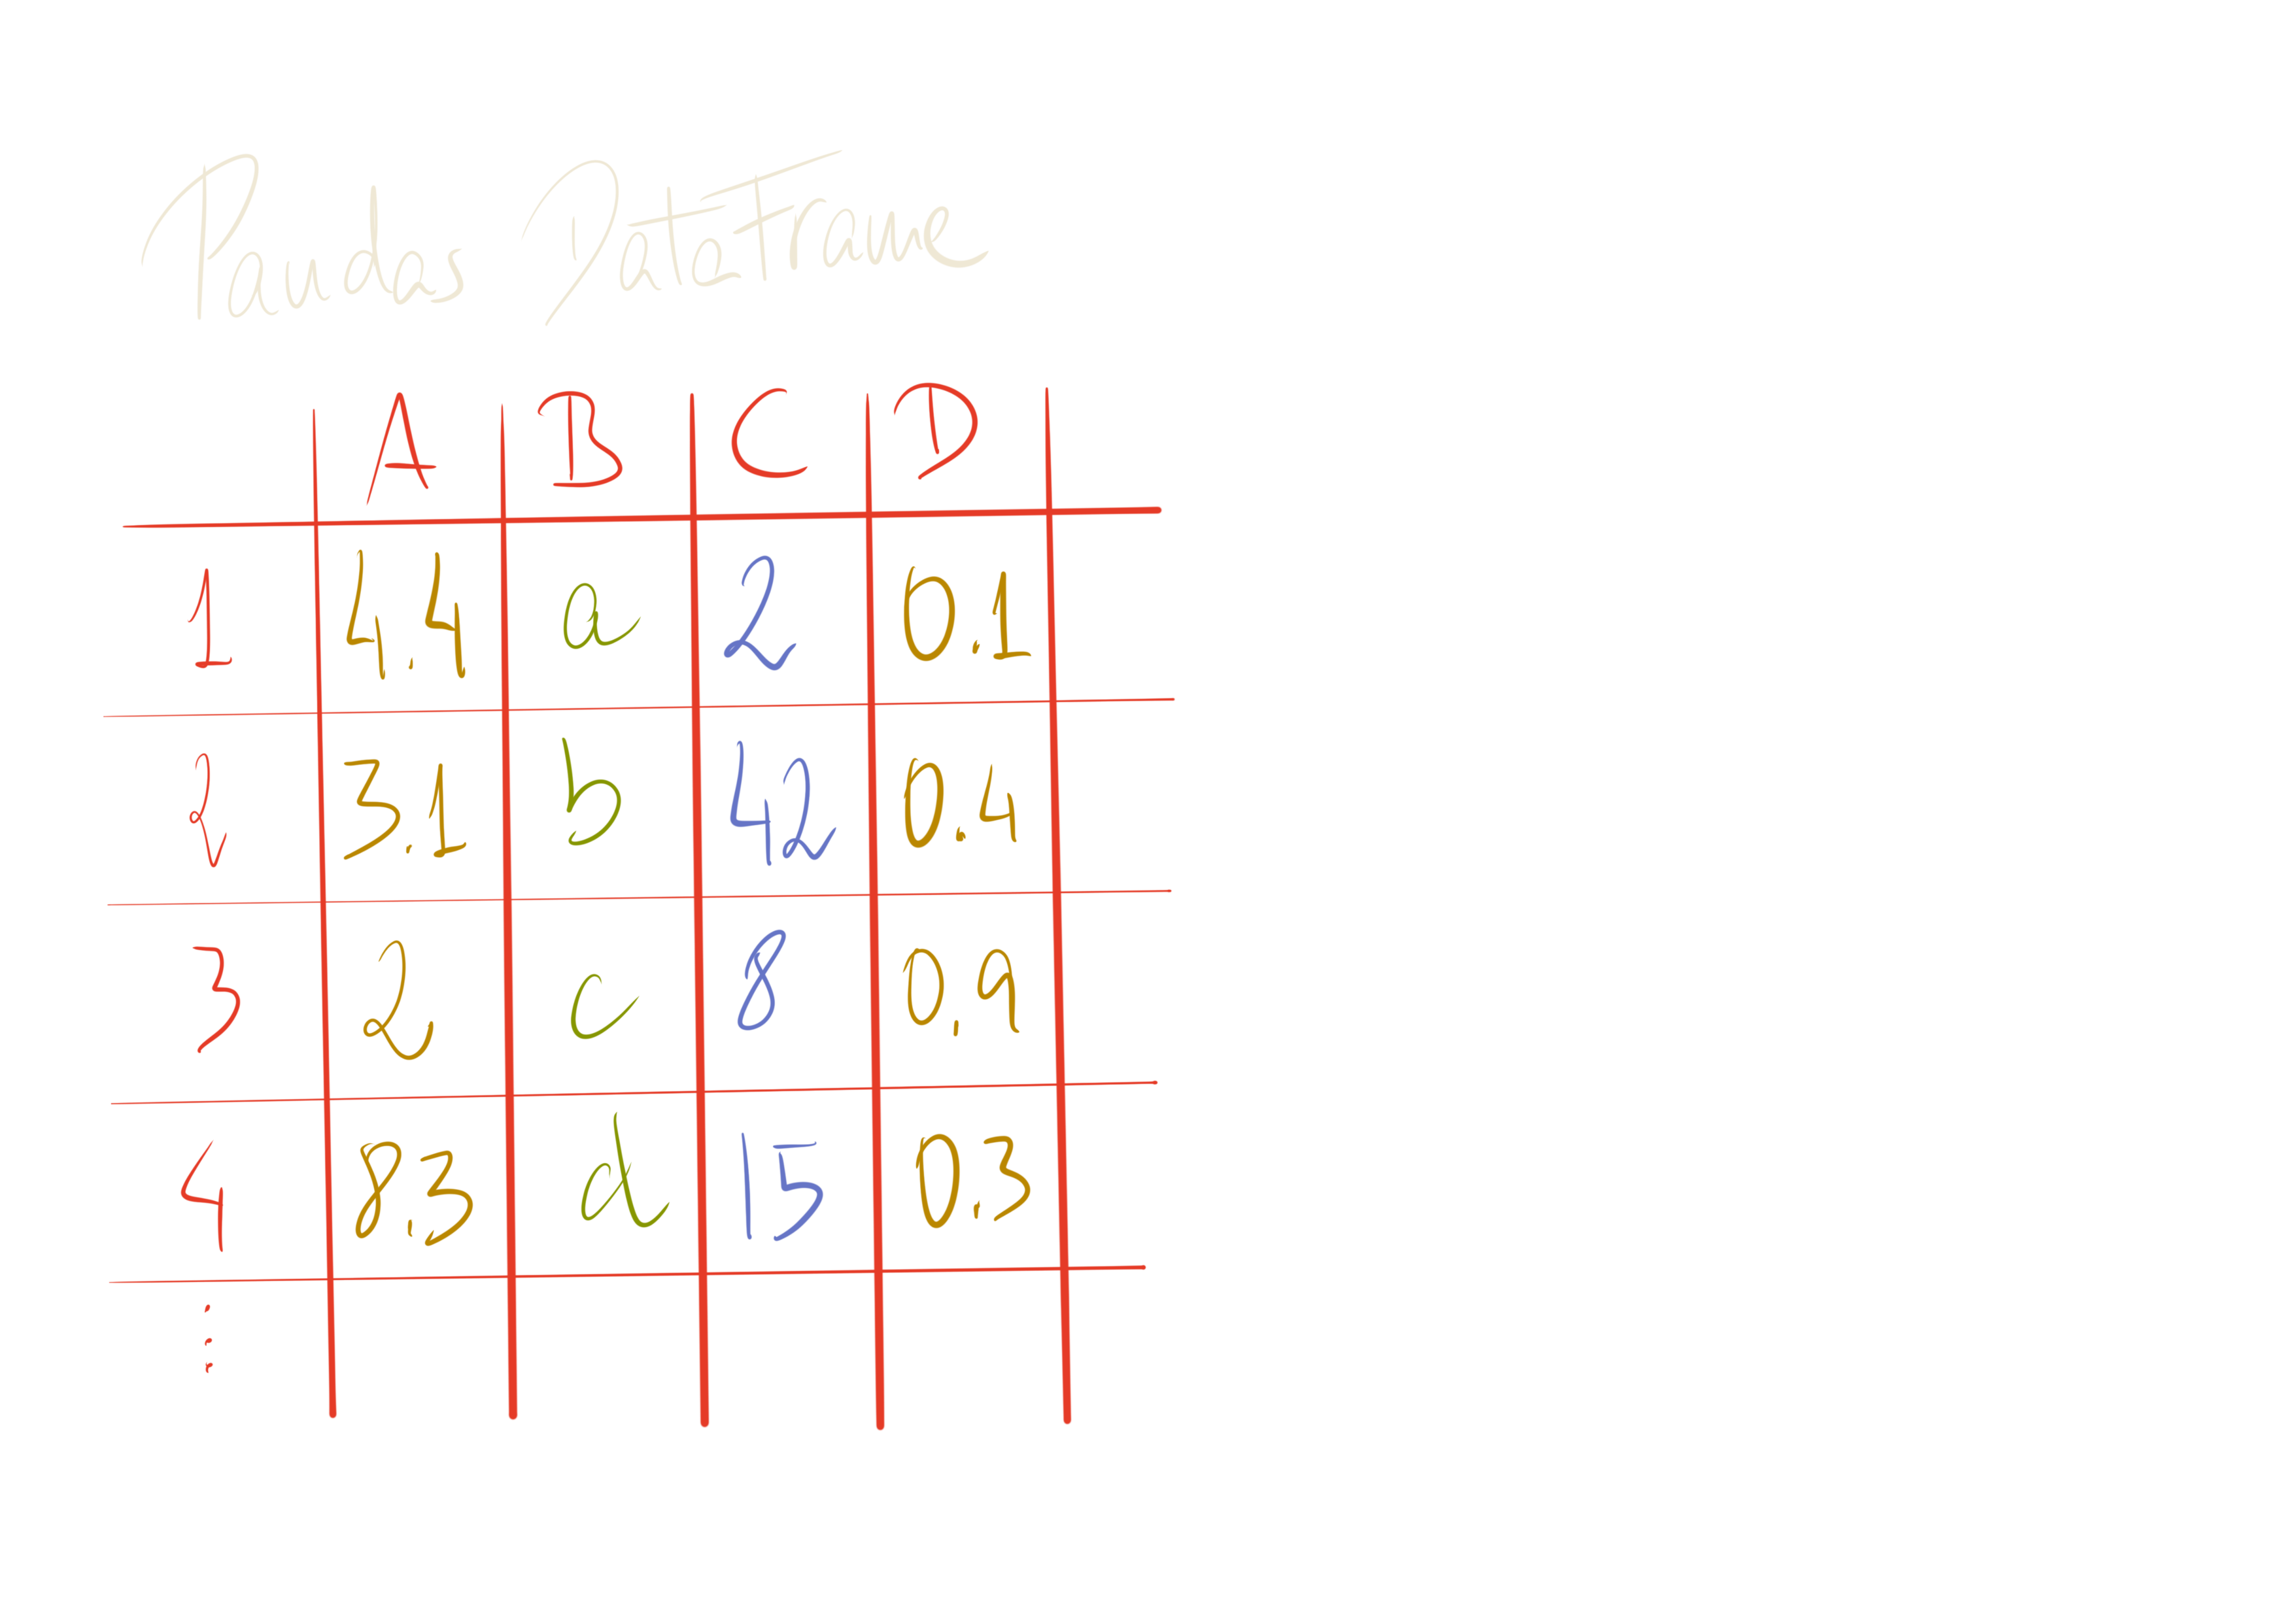 Pandas DataFrame
A B C D
1 4.4 a 2 0.1
2 3.1 b 42 0.4
3 2 c 8 0,9
4 8.3 d 15 0.3
⋮